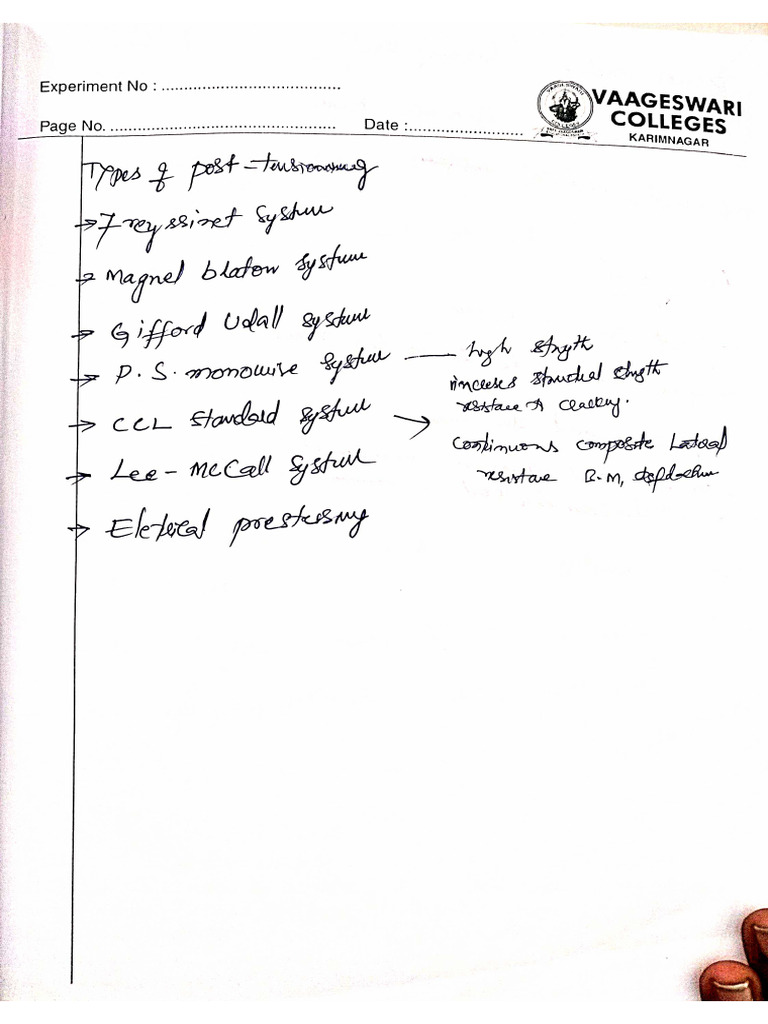 Experiment No : ........................................
Page No. .................................................. Date :.........................
VAAGESWARI
COLLEGES
KARIMNAGAR
Types of post-tensionning
→ Freyssinet system
→ Magnel blaton system
→ Gifford Udall system
→ P.S. monowire system — high strength
increses structural strength
resistance to cracking.
→ CCL standard system →
Continuous composite Lateral
resistance B.M,
→ Lee-McCall system
→ Eletrical prestressing